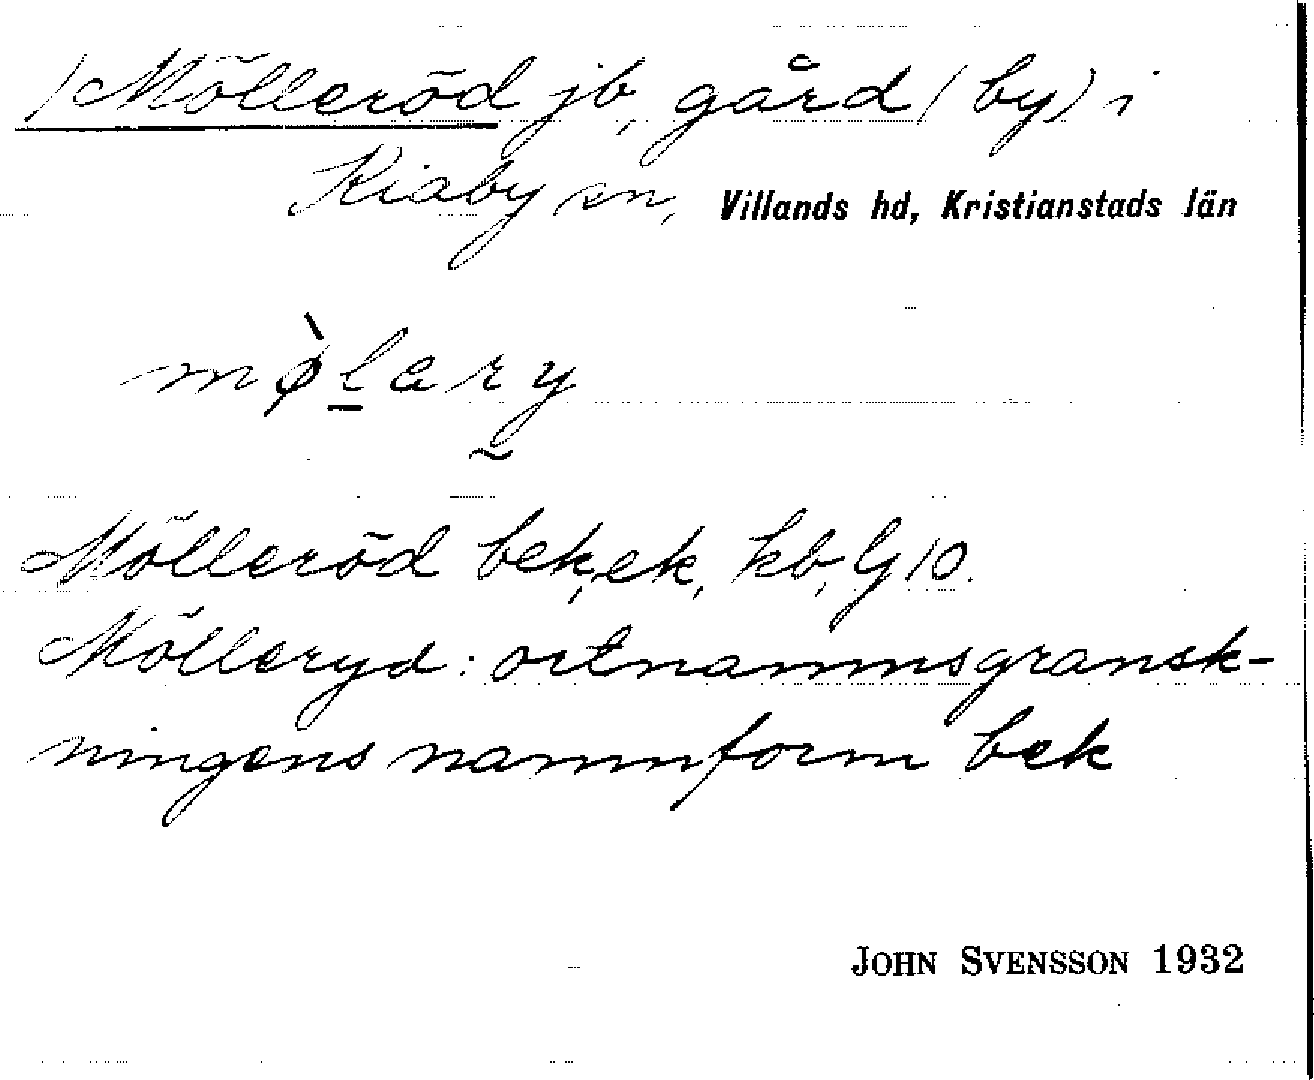 /Mölleröd jb, gård (by) i
Kiaby sn, Villands hd, Kristianstads län
mø̀l̲ary̰
Mölleröd bek, ek, kb, G10.
Mölleryd: ortnamnsgransk-
ningens namnform bek
JOHN SVENSSON 1932